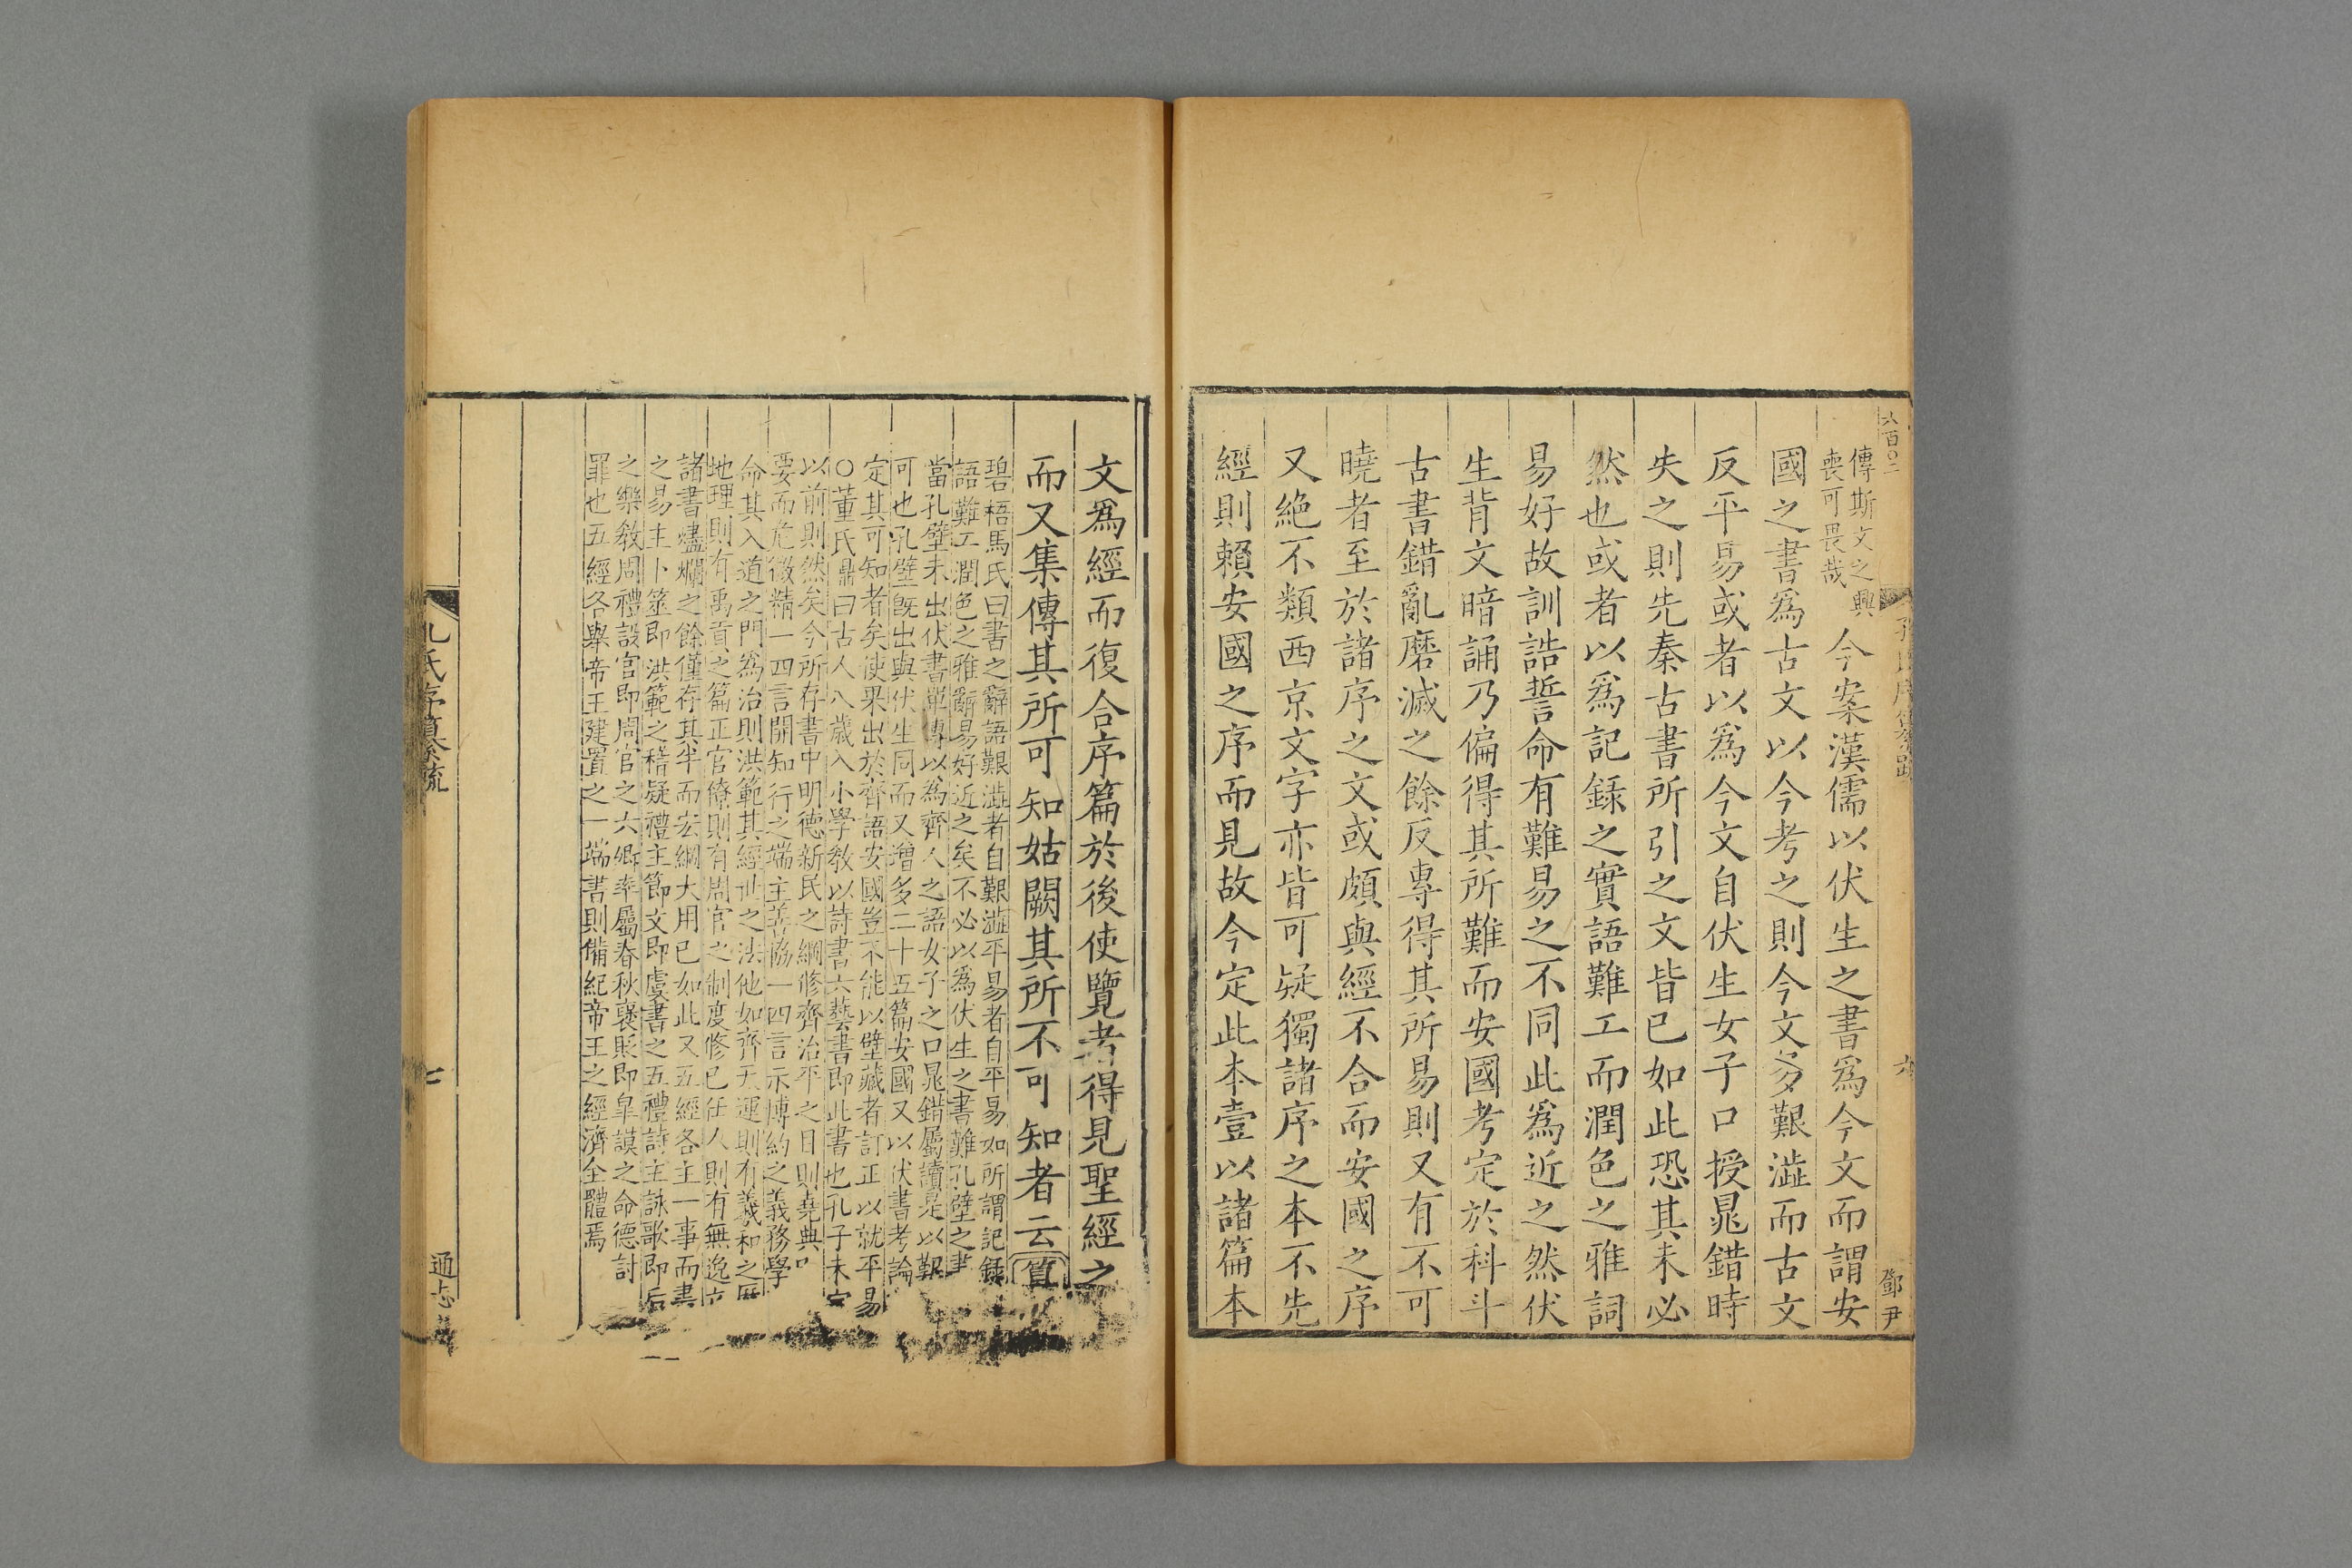 六百〇二
傳斯文之興
喪可畏哉
今案漢儒以伏生之書爲今文而謂安
國之書爲古文以今考之則今文多艱澁而古文
反平易或者以爲今文自伏生女子口授晁錯時
失之則先秦古書所引之文皆已如此恐其未必
然也或者以爲記録之實語難工而潤色之雅詞
易好故訓誥誓命有難易之不同此爲近之然伏
生背文暗誦乃偏得其所難而安國考定於科斗
古書錯亂磨滅之餘反專得其所易則又有不可
曉者至於諸序之文或頗與經不合而安國之序
又絶不類西京文字亦皆可疑獨諸序之本不先
經則賴安國之序而見故今定此本壹以諸篇本
鄧尹
文爲經而復合序篇於後使覽者得見聖經之
而又集傳其所可知姑闕其所不可知者云
碧梧馬氏曰書之辭語艱澁者自艱澁平易者自平易如所謂記録
語難工潤色之雅辭易好近之矣不必以爲伏生之書難孔壁之書
當孔壁未出伏書單傳以爲齊人之語女子之口晁錯屬讀是以艱
可也孔壁旣出與伏生同而又增多二十五篇安國又以伏書考論
定其可知者矣使果出於齊語安國豈不能以壁藏者訂正以就平易
〇董氏鼎曰古人八歲入小學敎以詩書六藝書即此書也孔子未定
以前則然矣今所存書中明德新民之綱修齊治平之目則堯典
要而危微精一四言開知行之端主善協一四言示博約之義務學
命其入道之門爲治則洪範其經世之法他如齊天運則有羲和之曆
地理則有禹貢之篇正官僚則有周官之制度修已任人則有無逸立
諸書燼爛之餘僅存其半而宏綱大用已如此又五經各主一事而書
之易主卜筮即洪範之稽疑禮主節文即虞書之五禮詩主詠歌即后
之樂敎周禮設官即周官之六卿率屬春秋襃貶即皐謨之命德討
罪也五經各舉帝王建置之一端書則備紀帝王之經濟全體焉
孔氏序纂疏
七
通志